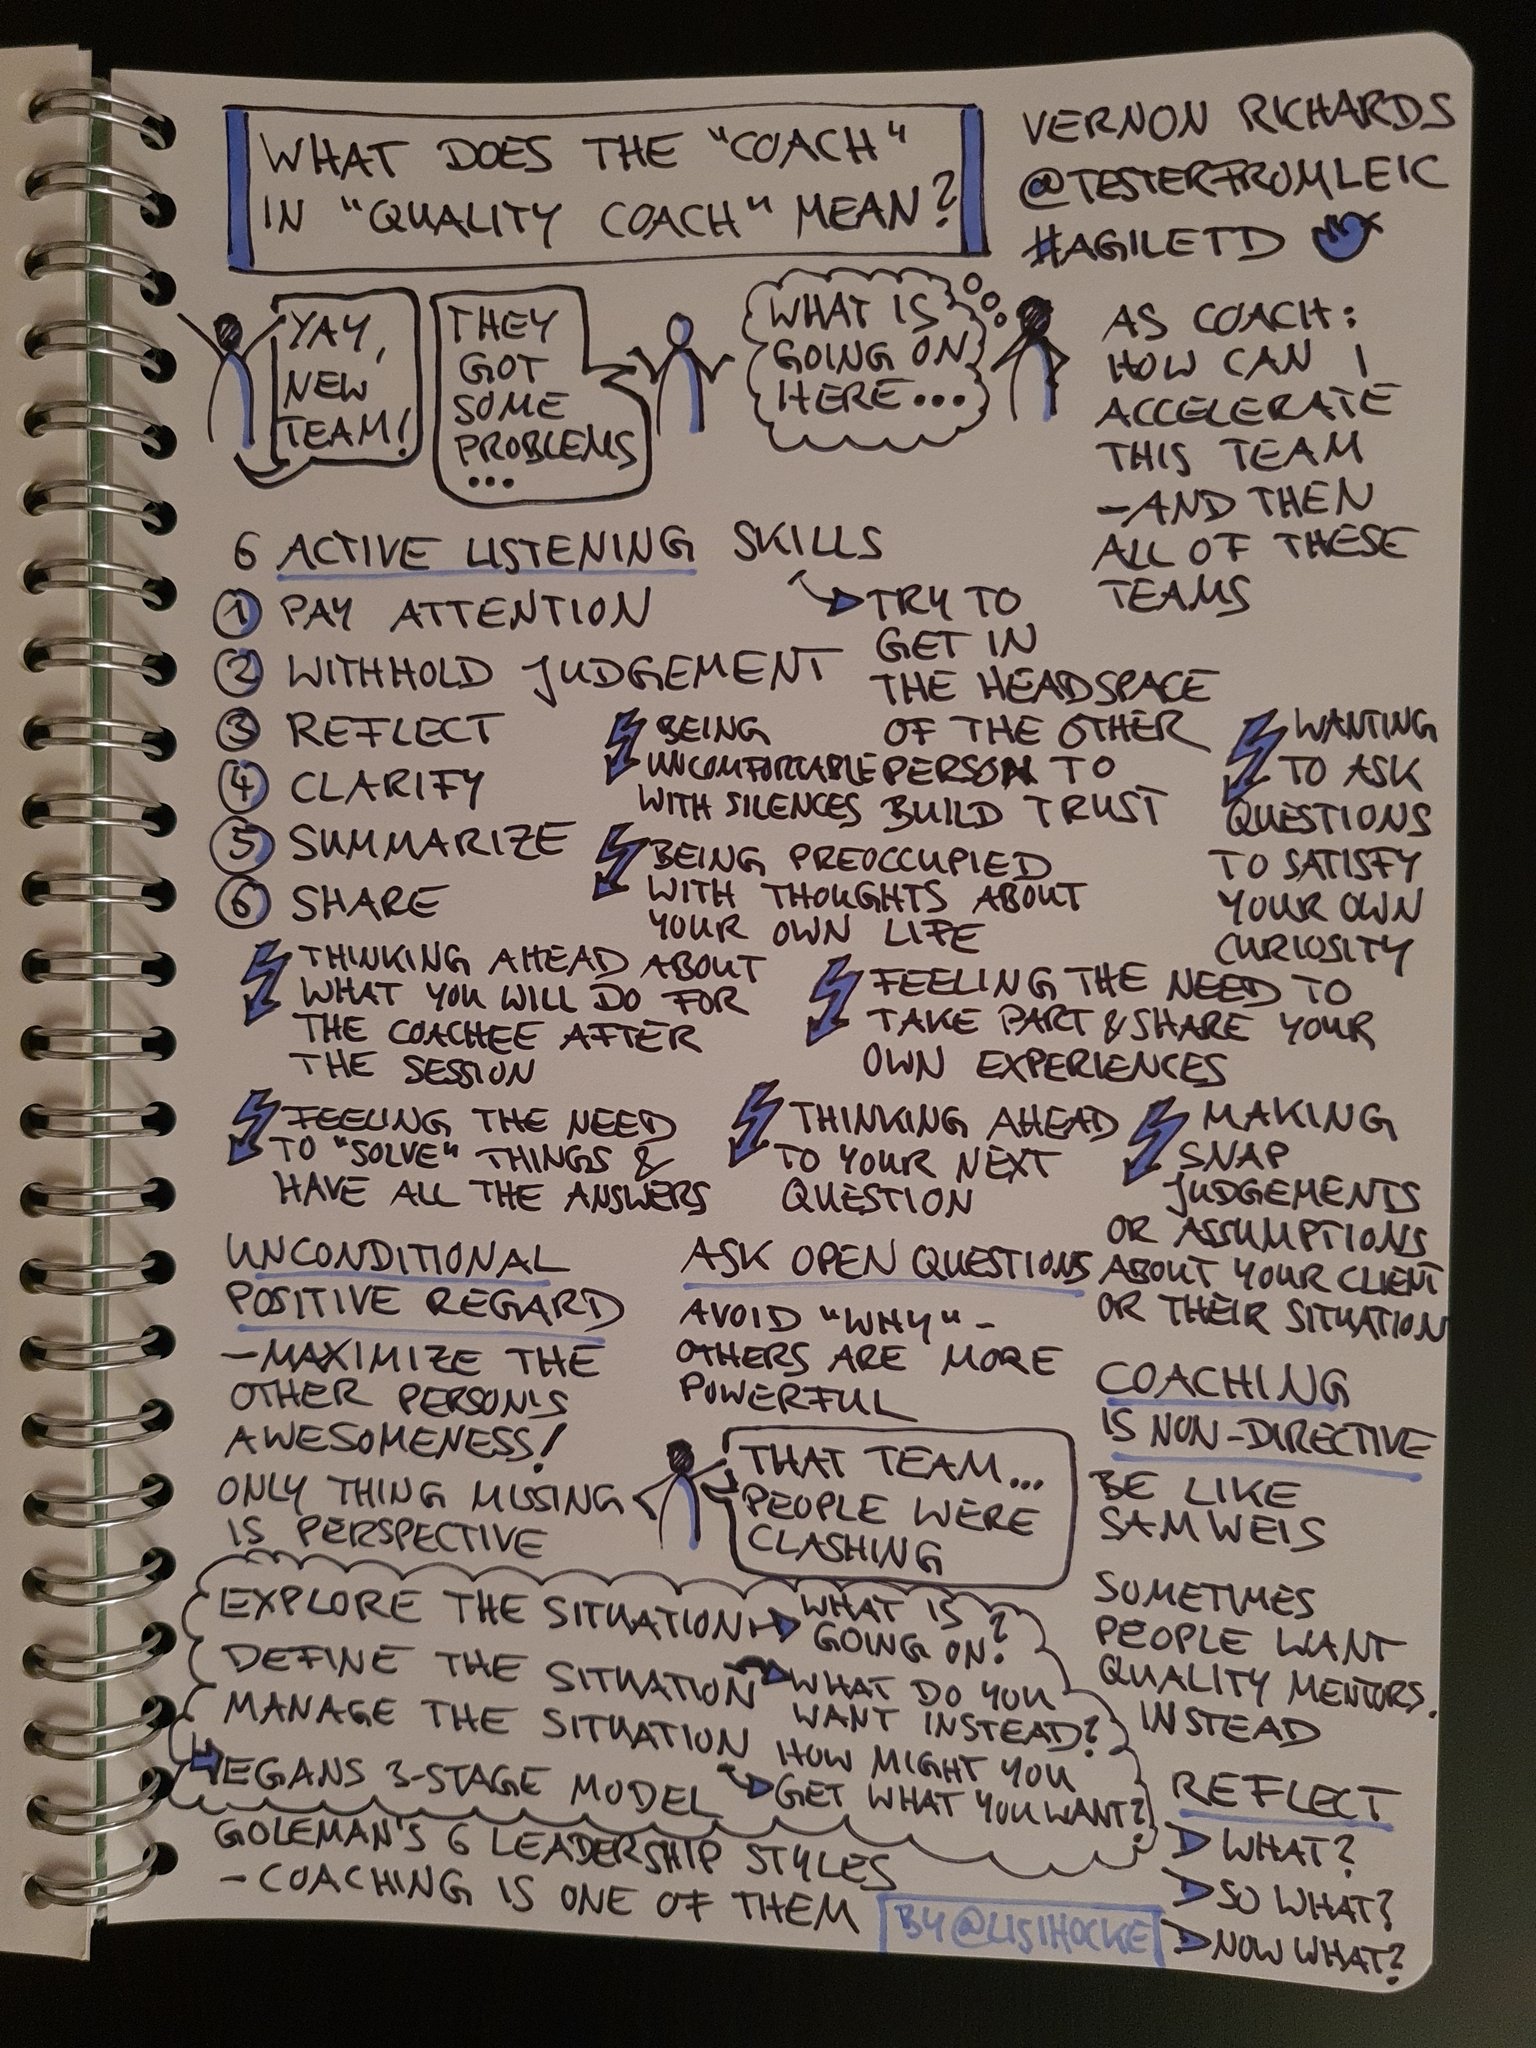 WHAT DOES THE "COACH"
IN "QUALITY COACH" MEAN?
VERNON RICHARDS
@TESTERFROMLEIC
#AGILETD
YAY,
NEW
TEAM!
THEY
GOT
SOME
PROBLEMS
...
WHAT IS
GOING ON
HERE...
AS COACH:
HOW CAN I
ACCELERATE
THIS TEAM
- AND THEN
ALL OF THESE
TEAMS
6 ACTIVE LISTENING SKILLS
TRY TO
GET IN
THE HEADSPACE
OF THE OTHER
PERSON TO
BUILD TRUST
1 PAY ATTENTION
2 WITHHOLD JUDGEMENT
3 REFLECT
4 CLARIFY
5 SUMMARIZE
6 SHARE
BEING
UNCOMFORTABLE
WITH SILENCES
WANTING
TO ASK
QUESTIONS
TO SATISFY
YOUR OWN
CURIOSITY
BEING PREOCCUPIED
WITH THOUGHTS ABOUT
YOUR OWN LIFE
THINKING AHEAD ABOUT
WHAT YOU WILL DO FOR
THE COACHEE AFTER
THE SESSION
FEELING THE NEED TO
TAKE PART & SHARE YOUR
OWN EXPERIENCES
FEELING THE NEED
TO "SOLVE" THINGS &
HAVE ALL THE ANSWERS
THINKING AHEAD
TO YOUR NEXT
QUESTION
MAKING
SNAP
JUDGEMENTS
OR ASSUMPTIONS
ABOUT YOUR CLIENT
OR THEIR SITUATION
UNCONDITIONAL
POSITIVE REGARD
- MAXIMIZE THE
OTHER PERSON'S
AWESOMENESS!
ONLY THING MISSING
IS PERSPECTIVE
ASK OPEN QUESTIONS
AVOID "WHY" -
OTHERS ARE MORE
POWERFUL
THAT TEAM...
PEOPLE WERE
CLASHING
COACHING
IS NON-DIRECTIVE
BE LIKE
SAMWEIS
SOMETIMES
PEOPLE WANT
QUALITY MENTORS.
INSTEAD
EXPLORE THE SITUATION
WHAT IS
GOING ON?
DEFINE THE SITUATION
WHAT DO YOU
WANT INSTEAD?
MANAGE THE SITUATION
HOW MIGHT YOU
GET WHAT YOU WANT?
EGANS 3-STAGE MODEL
GOLEMAN'S 6 LEADERSHIP STYLES
- COACHING IS ONE OF THEM
REFLECT
WHAT?
SO WHAT?
NOW WHAT?
BY @LISIHOCKE